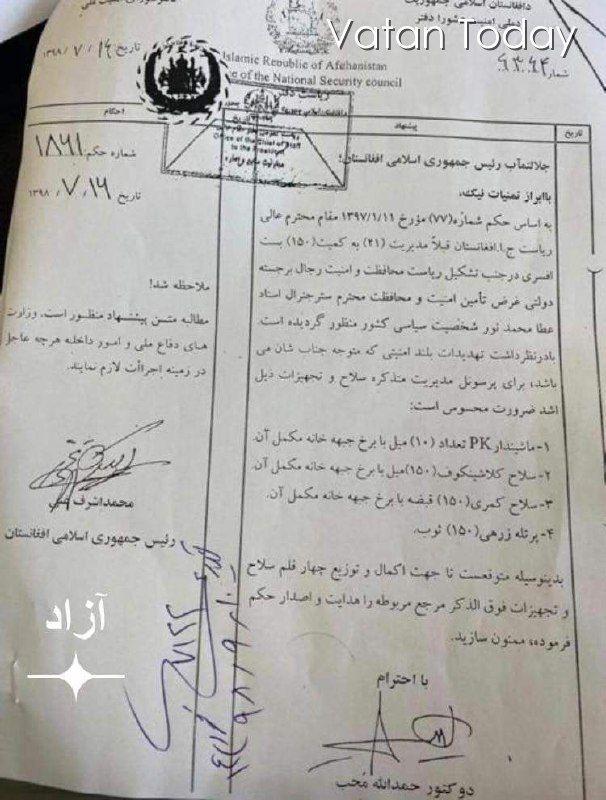 Vatan Today
دافغانستان اسلامی جمهوریت
دملی امنیت شورا دفتر
Islamic Republic of Afghanistan
Office of the National Security council
Office of the Chief of Staff
to the President
تاریخ ۱۳۹۸/۷/۱۴
تاریخ
پیشنهاد
احکام
جلالتمآب رئیس جمهوری اسلامی افغانستان!
باابراز تمنیات نیک،
به اساس حکم شماره(۷۷) مؤرخ ۱۳۹۷/۱/۱۱ مقام محترم عالی
ریاست ج.ا.افغانستان قبلاً مدیریت (۲۱) به کمیت(۱۵۰) بست
افسری درجنب تشکیل ریاست محافظت و امنیت رجال برجسته
دولتی غرض تأمین امنیت و محافظت محترم سترجنرال استاد
عطا محمد نور شخصیت سیاسی کشور منظور گردیده است.
بادرنظرداشت تهدیدات بلند امنیتی که متوجه جناب شان می
باشد، برای پرسونل مدیریت متذکره سلاح و تجهیزات ذیل
اشد ضرورت محسوس است:
۱- ماشیندار PK تعداد (۱۰) میل با برخ جبهه خانه مکمل آن.
۲- سلاح کلاشینکوف(۱۵۰)میل با برخ جبهه خانه مکمل آن.
۳- سلاح کمری(۱۵۰) قبضه با برخ جبهه خانه مکمل آن.
۴- پرتله زرهی(۱۵۰) ثوب.
بدینوسیله متوقعست تا جهت اکمال و توزیع چهار قلم سلاح
و تجهیزات فوق الذکر مرجع مربوطه را هدایت و اصدار حکم
فرموده، ممنون سازید.
با احترام
دوکتور حمدالله محب
شماره حکم: ۱۸۶۱
تاریخ ۱۳۹۸/۷/۱۶
ملاحظه شد!
مطالبه متن پیشنهاد منظور است، وزارت
های دفاع ملی و امور داخله هرچه عاجل
در زمینه اجراآت لازم نمایند.
محمداشرف غنی
رئیس جمهوری اسلامی افغانستان
آزاد